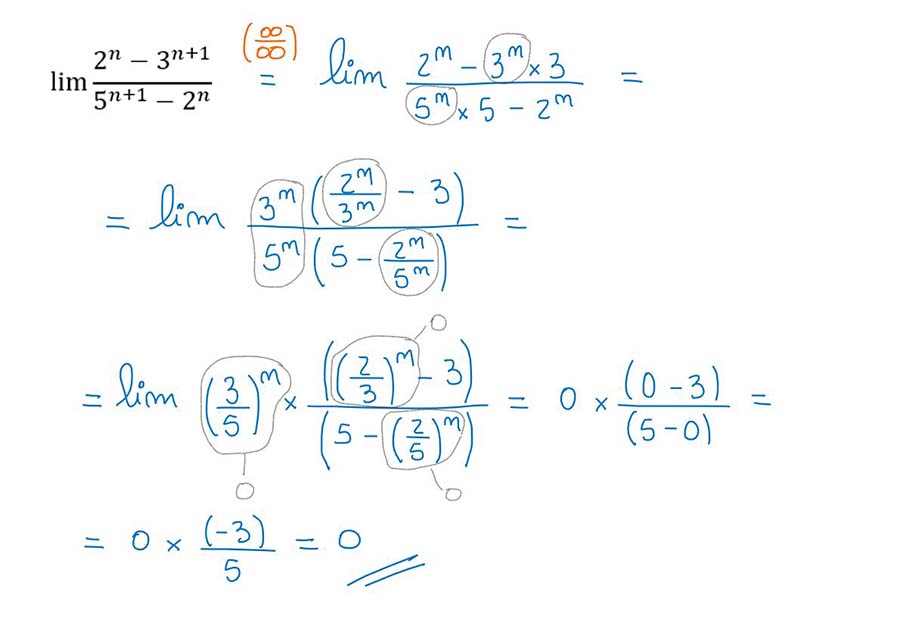 lim (2ⁿ − 3ⁿ⁺¹)/(5ⁿ⁺¹ − 2ⁿ) (∞/∞) = lim (2ⁿ − 3ⁿ × 3)/(5ⁿ × 5 − 2ⁿ) =
= lim (3ⁿ (2ⁿ/3ⁿ − 3))/(5ⁿ (5 − 2ⁿ/5ⁿ)) =
0
= lim (3/5)ⁿ × (((2/3)ⁿ − 3))/((5 − (2/5)ⁿ)) = 0 × (0 − 3)/(5 − 0) =
0 0
= 0 × (−3)/5 = 0